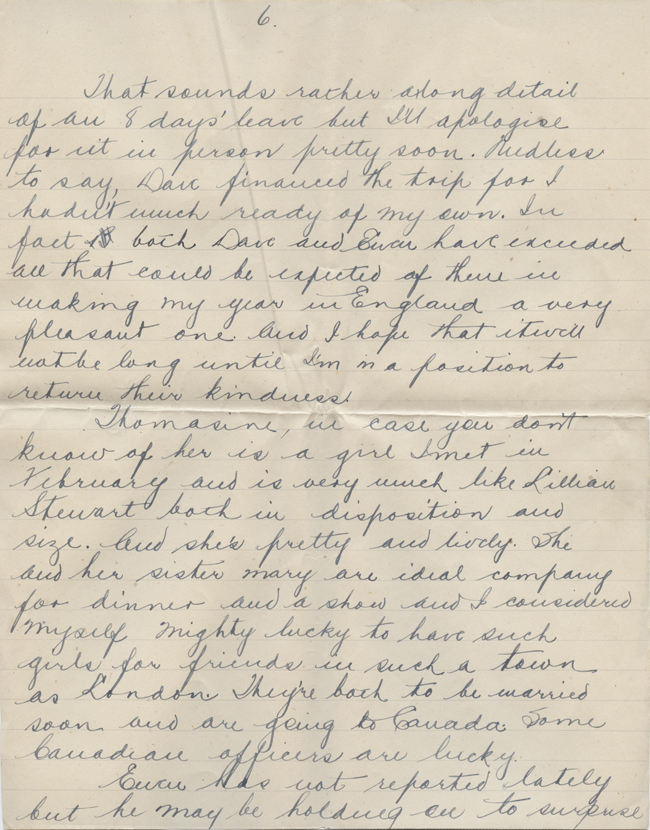 6.
That sounds rather a long detail
of an 8 days' leave but I'll apologise
for it in person pretty soon. Needless
to say, Dave financed the trip for I
hadn't much ready of my own. In
fact both Dave and Ewen have exceeded
all that could be expected of them in
making my year in England a very
pleasant one. And I hope that it will
not be long until I'm in a position to
return their kindness.
Thomasine, in case you don't
know of her is a girl I met in
February and is very much like Lillian
Stewart both in disposition and
size. And she's pretty and lively. She
and her sister Mary are ideal company
for dinner and a show and I considered
myself mighty lucky to have such
girls for friends in such a town
as London. They're both to be married
soon and are going to Canada. Some
Canadian officers are lucky.
Ewen has not reported lately
but he may be holding on to surprise